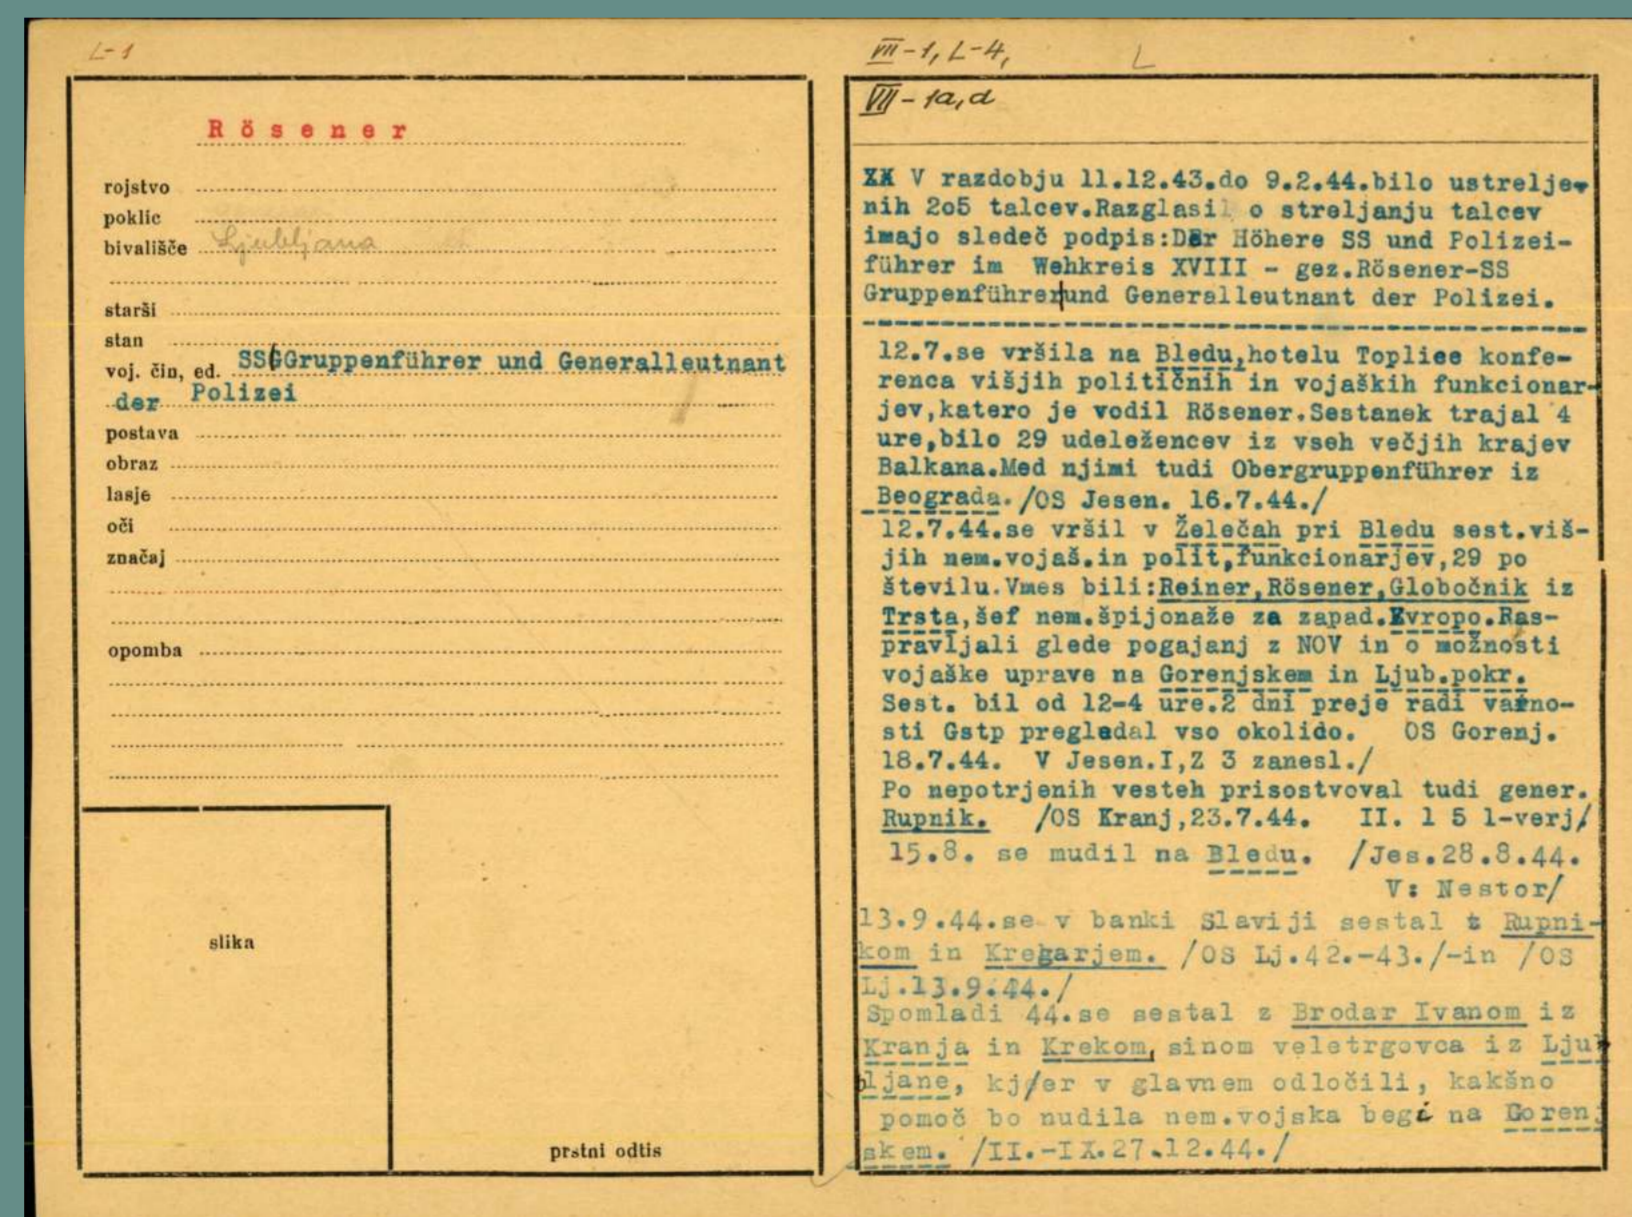 L-1
Rösener
rojstvo
poklic
bivališče Ljubljana
starši
stan
voj. čin, ed. SSGGruppenführer und Generalleutnant
der Polizei
postava
obraz
lasje
oči
značaj
opomba
slika
prstni odtis
VII-1, L-4, L
VII-1a,d
XX V razdobju 11.12.43.do 9.2.44.bilo ustrelje-
nih 2o5 talcev.Razglasi o streljanju talcev
imajo sledeč podpis:DEr Höhere SS und Polizei-
führer im Wehkreis XVIII - gez.Rösener-SS
Gruppenführer und Generalleutnant der Polizei.
12.7.se vršila na Bledu,hotelu Topliee konfe-
renca višjih političnih in vojaških funkcionar-
jev,katero je vodil Rösener.Sestanek trajal 4
ure,bilo 29 udeležencev iz vseh večjih krajev
Balkana.Med njimi tudi Obergruppenführer iz
Beograda. /OS Jesen. 16.7.44./
12.7.44.se vršil v Želečah pri Bledu sest.viš-
jih nem.vojaš.in polit,funkcionarjev,29 po
številu.Vmes bili:Reiner,Rösener,Globočnik iz
Trsta,šef nem.špijonaže za zapad.Evropo.Ras-
pravljali glede pogajanj z NOV in o možnosti
vojaške uprave na Gorenjskem in Ljub.pokr.
Sest. bil od 12-4 ure.2 dni preje radi varno-
sti Gstp pregledal vso okolido. OS Gorenj.
18.7.44. V Jesen.I,Z 3 zanesl./
Po nepotrjenih vesteh prisostvoval tudi gener.
Rupnik. /OS Kranj,23.7.44. II. 1 5 1-verj/
15.8. se mudil na Bledu. /Jes.28.8.44.
V: Nestor/
13.9.44.se v banki Slaviji sestal z Rupni-
kom in Kregarjem. /OS Lj.42.-43./-in /OS
Lj.13.9.44./
Spomladi 44.se sestal z Brodar Ivanom iz
Kranja in Krekom, sinom veletrgovca iz Ljub
ljane, kj/er v glavnem odločili, kakšno
pomoč bo nudila nem.vojska begi na Gorenj
skem. /II.-IX.27.12.44./